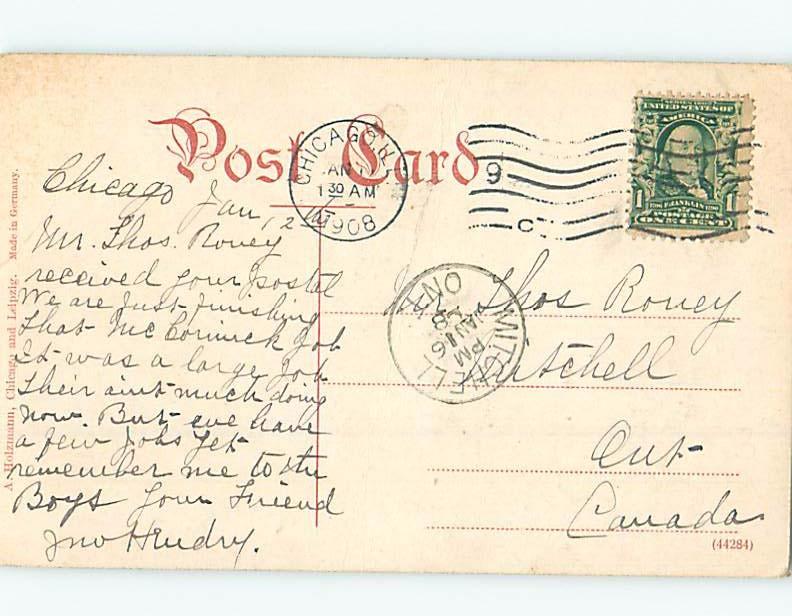 Post Card
A. Holzmann, Chicago and Leipzig. Made in Germany.
CHICAGO, ILL
JAN
1 30 AM
1908
9
C
SERIES 1902
UNITED STATES OF
AMERICA
1 FRANKLIN 1
ONE CENT
Chicago Jan 12
Mr. Thos. Roney
received your postal
We are just finishing
that McCormick job
It was a large job
their aint much doing
now. But we have
a few jobs yet
remember me to the
Boys your Friend
Jno Hendry.
MITCHELL
PM
JAN 16
08
ONT
Mr. Thos Roney
Mitchell
Ont
Canada
(44284)